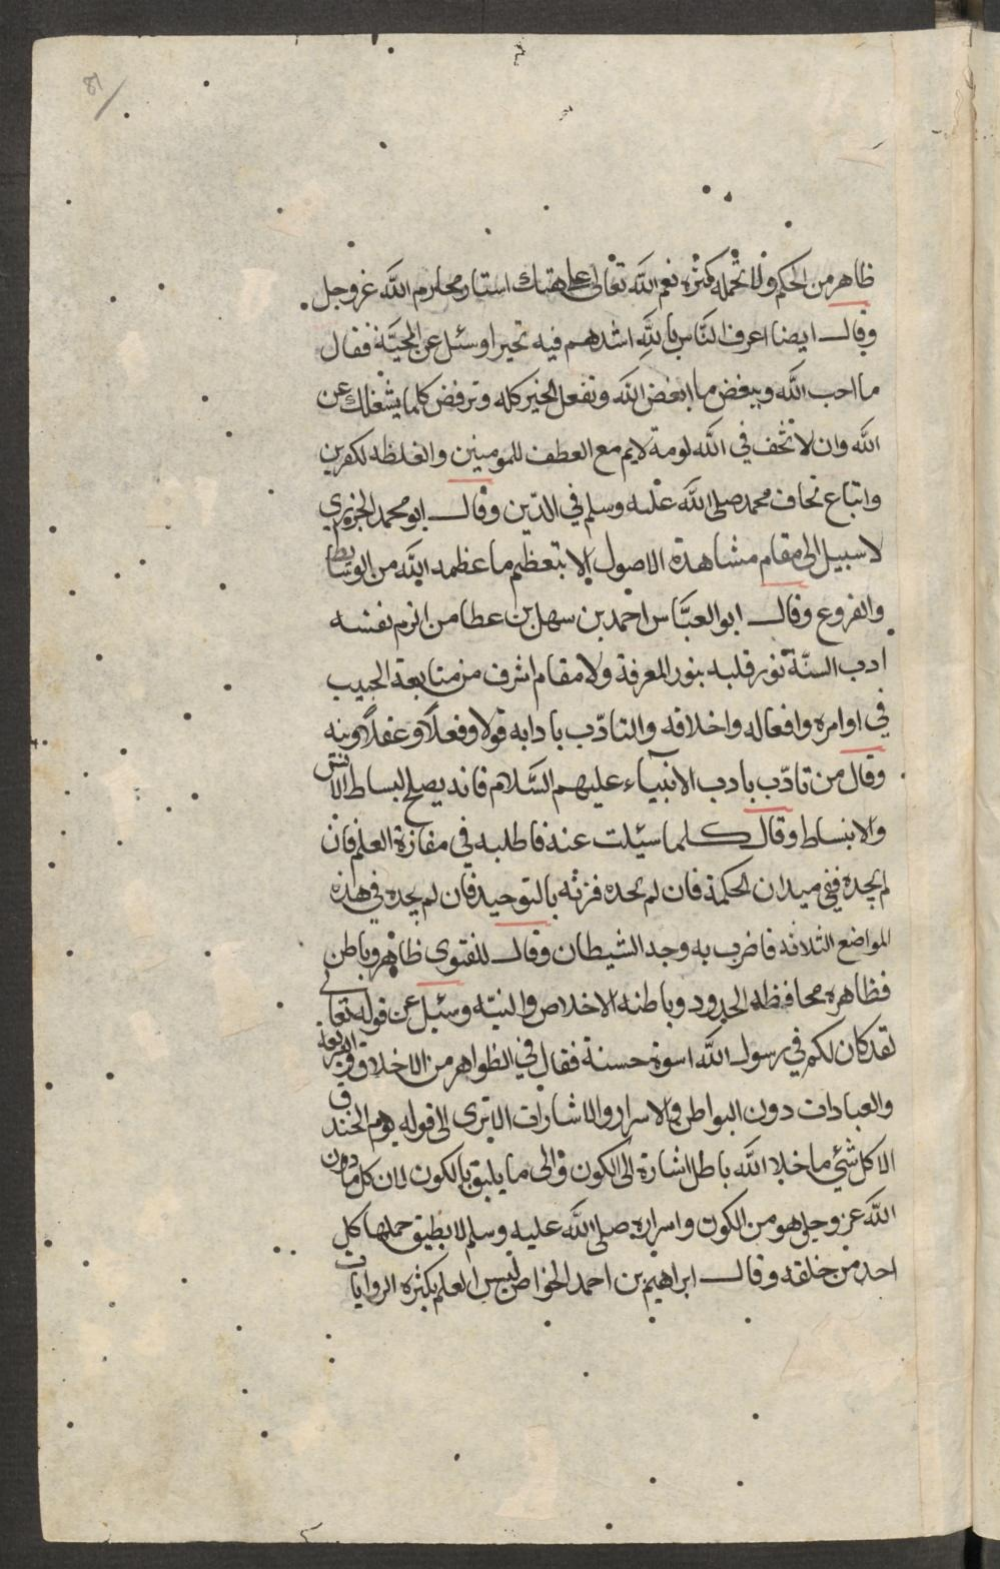 81
ظاهر من الحكم ولا تحمله كثرة نعم الله تعالى على هتك استار محارم الله عز وجل
وقال ايضا اعرف الناس بالله اشدهم فيه تحيرا وسئل عن المحبة فقال
ما احب الله ويبغض ما ابغض الله وتفعل الخير كله وترفض كلما يشغلك عن
الله وان لا تخف في الله لومة لايم مع العطف للمومنين والغلظه لكفرين
واتباع محمد صلى الله عليه وسلم في الدين وقال ابو محمد الجزيري
لا سبيل الى مقام مشاهدة الاصول الا بتعظيم ما عظمه الله من الوسائط
والفروع وقال ابو العباس احمد بن سهل بن عطا من الزم نفسه
ادب السنة نور قلبه بنور المعرفة ولا مقام اشرف من متابعة الحبيب
في اوامره وافعاله واخلاقه والتادب بادابه قولا وفعلا وعقلا ونيه
وقال من تادب بادب الانبياء عليهم السلام فانه يصلح لبساط الانس
والانبساط وقال كلما سيلت عنه فاطلبه في مفازة العلم فان
لم تجده ففي ميدان الحكمة فان لم تجده فزنه بالتوحيد فان لم تجده في هذه
المواضع الثلاثة فاضرب به وجه الشيطان وقال للتقوى ظاهر وباطن
فظاهره محافظه الحدود وباطنه الاخلاص والنيه وسئل عن قوله تعالى
لقد كان لكم في رسول الله اسوة حسنة فقال في الظواهر من الاخلاق
والعبادات دون البواطن والاسرار والاشارات الا ترى الى قوله يوم الخندق
الا كل شئي ما خلا الله باطل اشارة الى الكون والى ما يليق بالكون لان كل ما دون
الله عز وجل هو من الكون واسراره صلى الله عليه وسلم لا يطيق حملها كل
احد من خلقه وقال ابراهيم بن احمد الخواص ليس العلم بكثرة الروايات